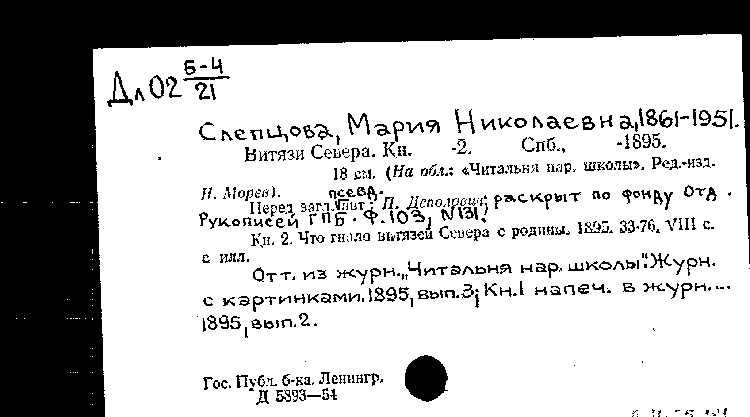 Дл02 Б-4/21
Слепцова, Мария Николаевна, 1861-1951.
Витязи Севера. Кн. -2. Спб., -1895.
18 см. (На обл.: «Читальня нар. школы». Ред.-изд.
Н. Морев).
псевд.
Перед загл. авт.: П. раскрыт по фонду Отд.
Рукописей ГПБ. Ф. 103, N131.
Кн. 2. Что гнало витязей Севера с родины. 1895. 33-76, VIII с.
с илл.
Отт. из журн. „Читальня нар. школы". Журн.
с картинками. 1895, вып. 3; Кн. 1 напеч. в журн....
1895, вып. 2.
Гос. Публ. б-ка. Ленингр.
Д 5893—54